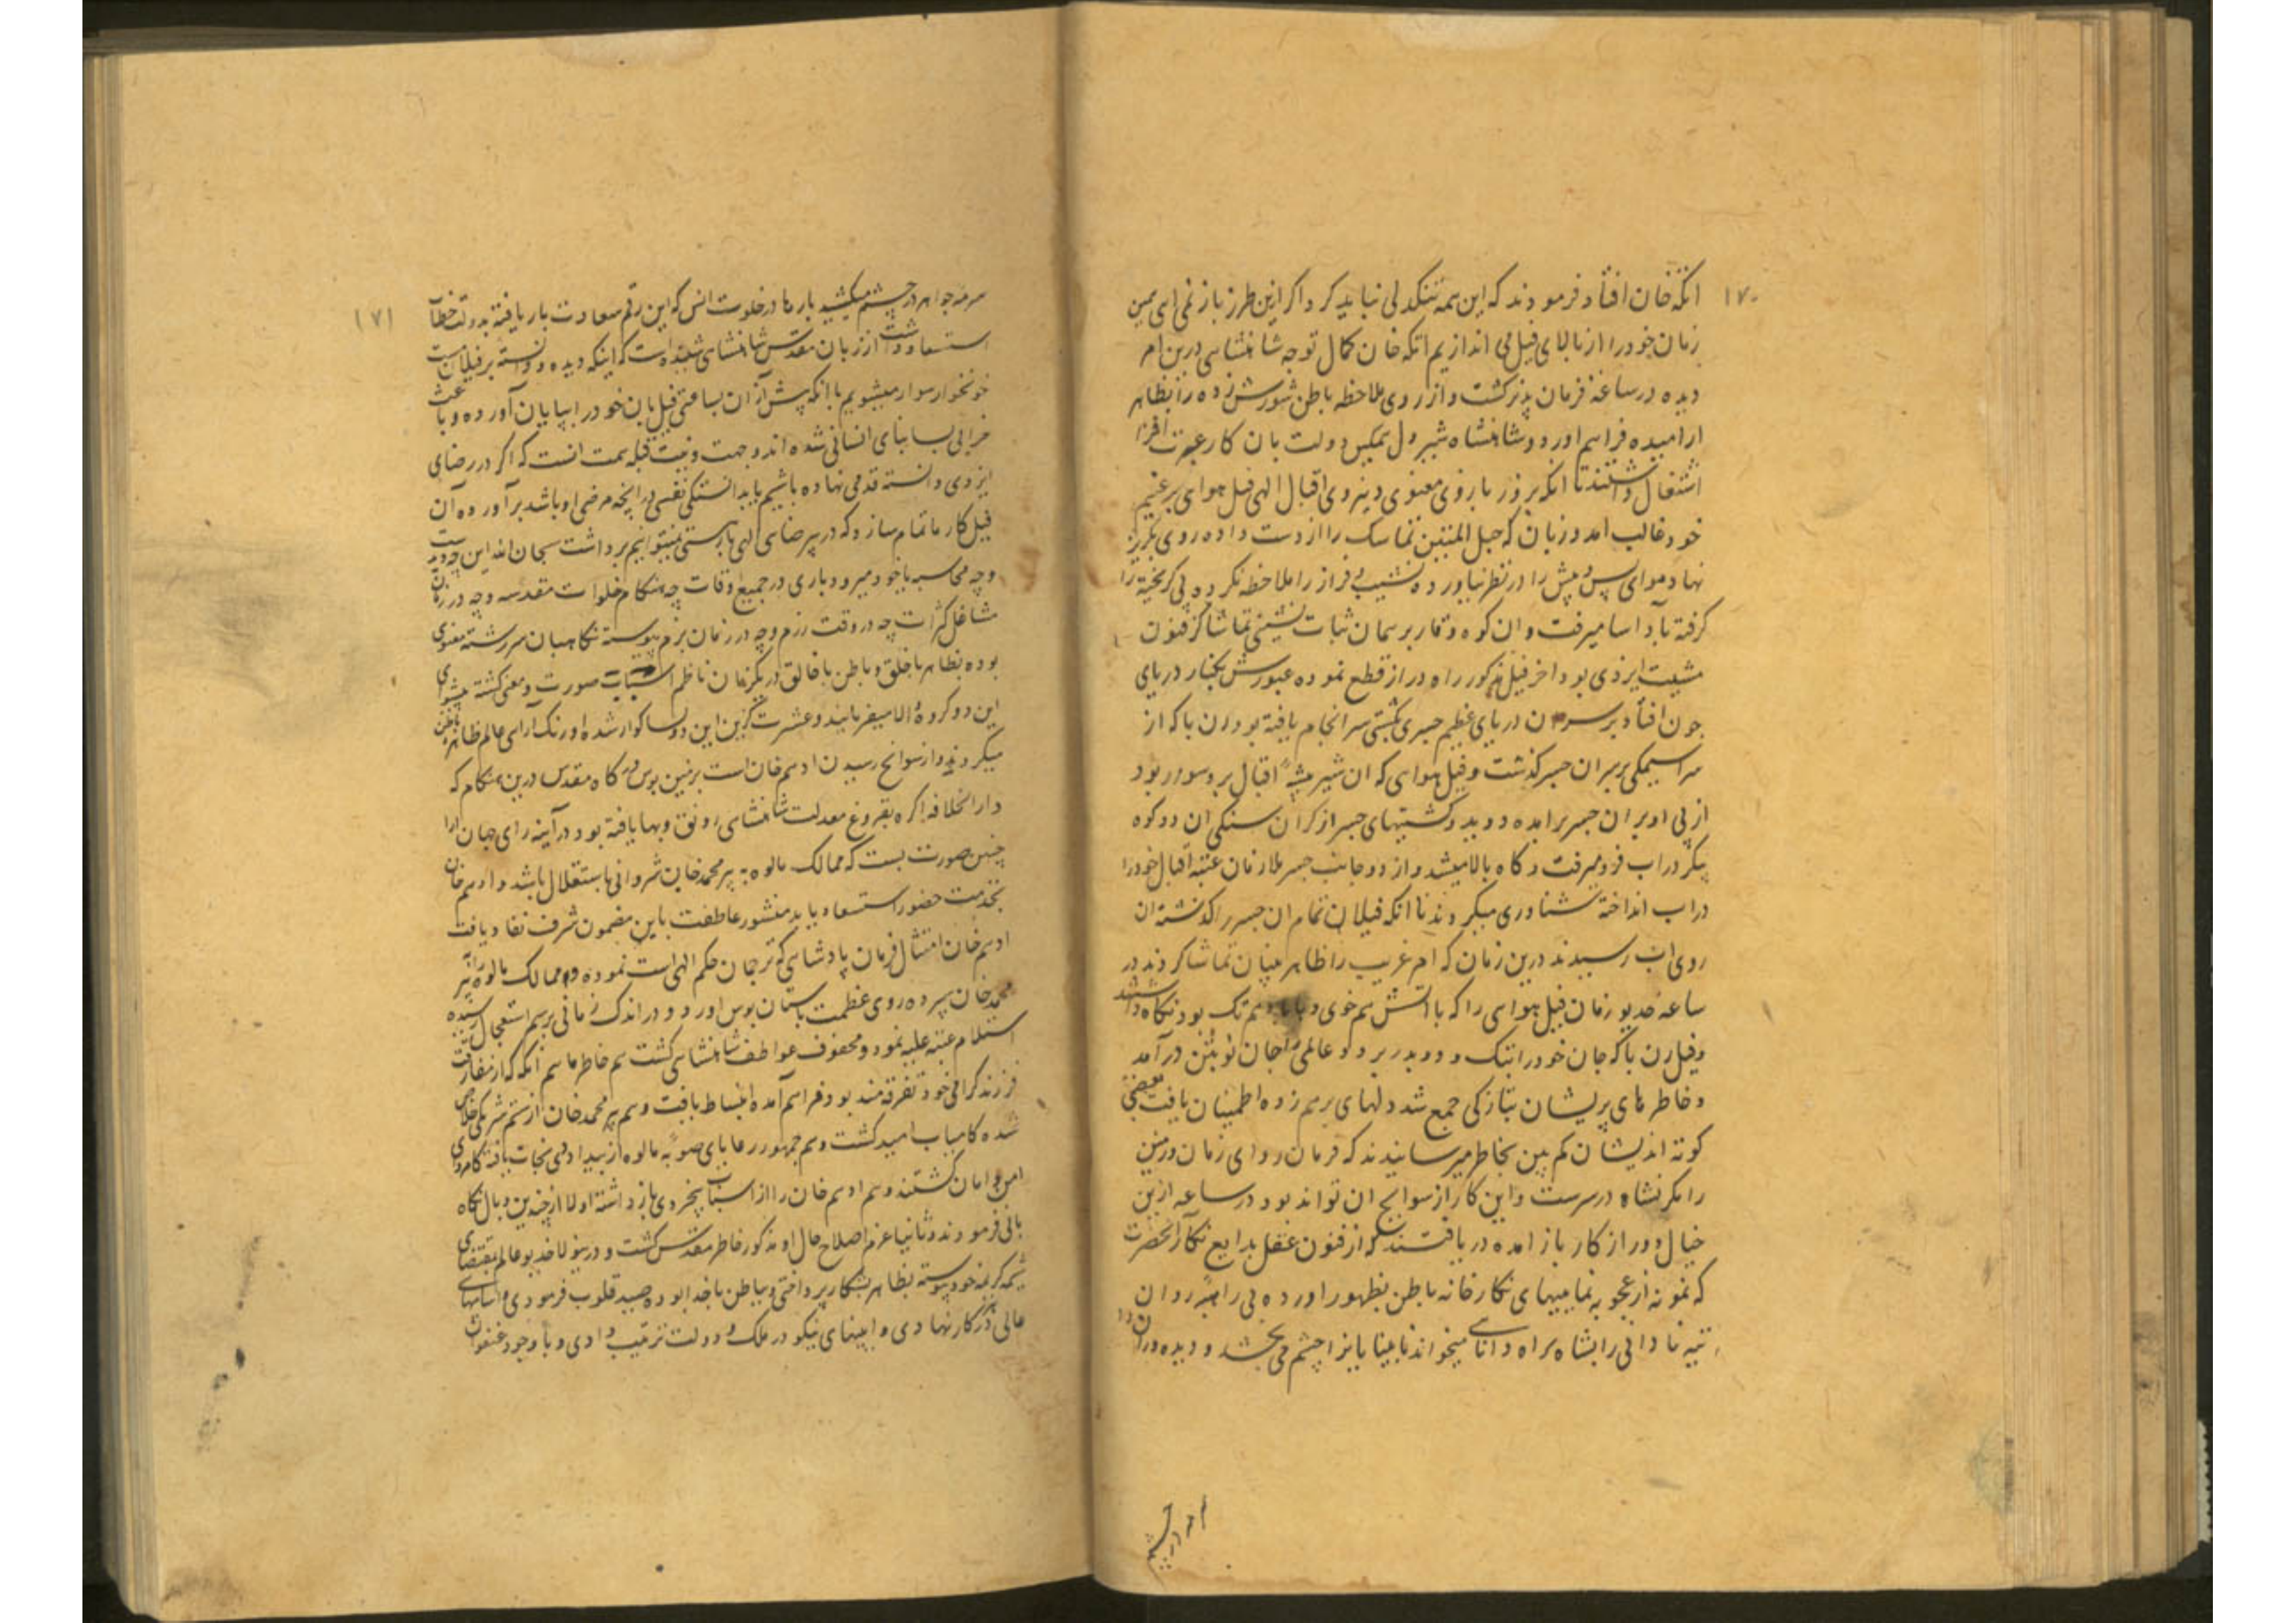 ۱۷۰
اتکه خان افتاد فرمودند که این همه تنکدلی نباید کرد اگر ازین طرز باز نمی آی همین
زمان خود را از بالای فیل می اندازیم اتکه خان کمال توجه شاهنشاهی درین امر
دیده در ساعت فرمان پذیر گشت و از روی ملاحظه باطن شورش زده را بظاهر
آرامیده فراهم آورد و شاهنشاه شیردل بتمکین دولت بان کار عبرت افزا
اشتغال داشتند تا انکه بزور بازوی معنوی و نیروی اقبال الهی فیل هوای بر غنیم
خود غالب امد و رن باکه حبل المتین تماسک را از دست داده روی بگریز
نهاد هوای پس و پیش را در نظر نیاورده نشیب و فراز را ملاحظه نکرده پی گریخته را
گرفته باد آسا میرفت و ان کوه وقار بر همان ثبات نشینی تماشاگر فنون
مشیت ایزدی بود اخر فیل مذکور راه دراز قطع نموده عبورش بکنار دریای
جون افتاد بر سر ان دریای عظیم جسری بکشتی سرانجام یافته بود رن باکه از
سراسیمگی بر سر ان جسر گذشت و فیل هوای که ان شیر بیشهٔ اقبال برو سوار بود
از پی او بر ان جسر برآمده دوید و کشتیهای جسر از گرانسنگی ان دو کوه
پیکر در اب فرو میرفت و گاه بالا میشد و از دو جانب جسر ملازمان عتبه اقبال خود را
در اب انداخته شناوری میکردند تا انکه فیلان تمام ان جسر را گذشته ان
روی اب رسیدند درین زمان که امر غریب را ظاهر بینان تماشا کردند در
ساعت خدیو زمان فیل هوای را که با اتش هم خوی و با باد هم تک بود نگاه داشتند
و فیل رن باکه جان خود را بتک و دو بدر برد و عالمی را جان نو بتن در آمد
و خاطرهای پریشان بتازگی جمع شد و دلهای برهم زده اطمینان یافت بعضی
کوته اندیشان کم بین بخاطر میرسانیدند که فرمان روای زمان و زمین
را مگر نشاه در سرست و این کار از سوانح ان تواند بود در ساعت ازین
خیال دور از کار باز امده دریافتند که از فنون عقل بدایع نگار آنحضرت
که نمونه از عجوبه نماییهای نگارخانه باطن بظهور آورده بی راهه روان
تیه نادانی را بشاه راه دانای میخواند نابینایان را چشم می بخشد و دیده وران را
م در چشم
۱۷۱
سرمه جواهر در چشم میکشید بارها در خلوت انس که این رقم سعادت بار یافته بدولت خطاب
استسعاد داشت از زبان مقدس شاهنشاهی شنیده است که اینکه دیده و دانسته بر فیلان مست
خونخوار سوار میشویم با انکه پیش از ان بساعتی فیلبان خود را بپایان آورده و باعث
خرابی بسا بنای انسانی شده اند وجهت و نیت قبله همت انست که اگر در رضای
ایزدی دانسته قدمی نهاده باشیم یا بدانستگی نفسی در آنچه مرضی او باشد برآورده آن
فیل کار ما تمام سازد که در بی رضای الهی بار هستی نمیتوانیم برداشت سبحان الله این چه دید ست
و چه محاسبه با خود میرود باری در جمیع اوقات چه هنگام خلوات مقدسه و چه در زمان
مشاغل کثرات چه در وقت رزم و چه در زمان بزم پیوسته نگاهبان سررشته معنوی
بوده بظاهر با خلق و باطن با خالق در یکزمان ناظم اسباب صورت و معنی گشته پیشوای
این دو گروه والا میفرمایند و عشرت گزین این دو نساء گوار شده اورنگ آرای عالم ظاهر و باطن
میگردند و از سوانح رسیدن ادهم خان است بزمین بوس درگاه مقدس درین هنگام که
دار الخلافه آگره بفروغ معدلت شاهنشاهی رونق و بها یافته بود در آینه رای جهان آرا
چنین صورت بست که ممالک مالوه به پیر محمد خان شروانی باستقلال باشد و ادهم خان
بخدمت حضور استسعاد یابد منشور عاطفت باین مضمون شرف نفاد یافت
ادهم خان امتثال فرمان پادشاهی که ترجمان حکم الهی است نموده ممالک مالوه را به پیر
محمد خان سپرده روی عظمت باستان بوس آورد و در اندک زمانی برسم استعجال رسیده
استلام عتبه علیه نمود و محفوف عواطف شاهنشاهی گشت هم خاطر ماهم انکه که از مفارقت
فرزند گرامی خود تفرقه مند بود فراهم آمده انبساط یافت و هم پیر محمد خان از ستم شریکی خلاص
شده کامیاب امید گشت و هم جمهور رعایای صوبهٔ مالوه از بیدادی نجات یافته کامروای
امن و امان گشتند و هم ادهم خان را از اسباب بیخردی باز داشته اولا از چندین وبال نگاه
بانی فرمودند و ثانیا عزم اصلاح حال او مذکور خاطر مقدس گشت و درینولا خدیو عالم بمقتضای
شیمه کریمه خود پیوسته بظاهر بشکار پرداختی و بباطن با خدا بوده صید قلوب فرمودی و اساسهای
عالی در کار نهادی و آیینهای نیکو در ملک و دولت ترتیب دادی و با وجود عنفوان